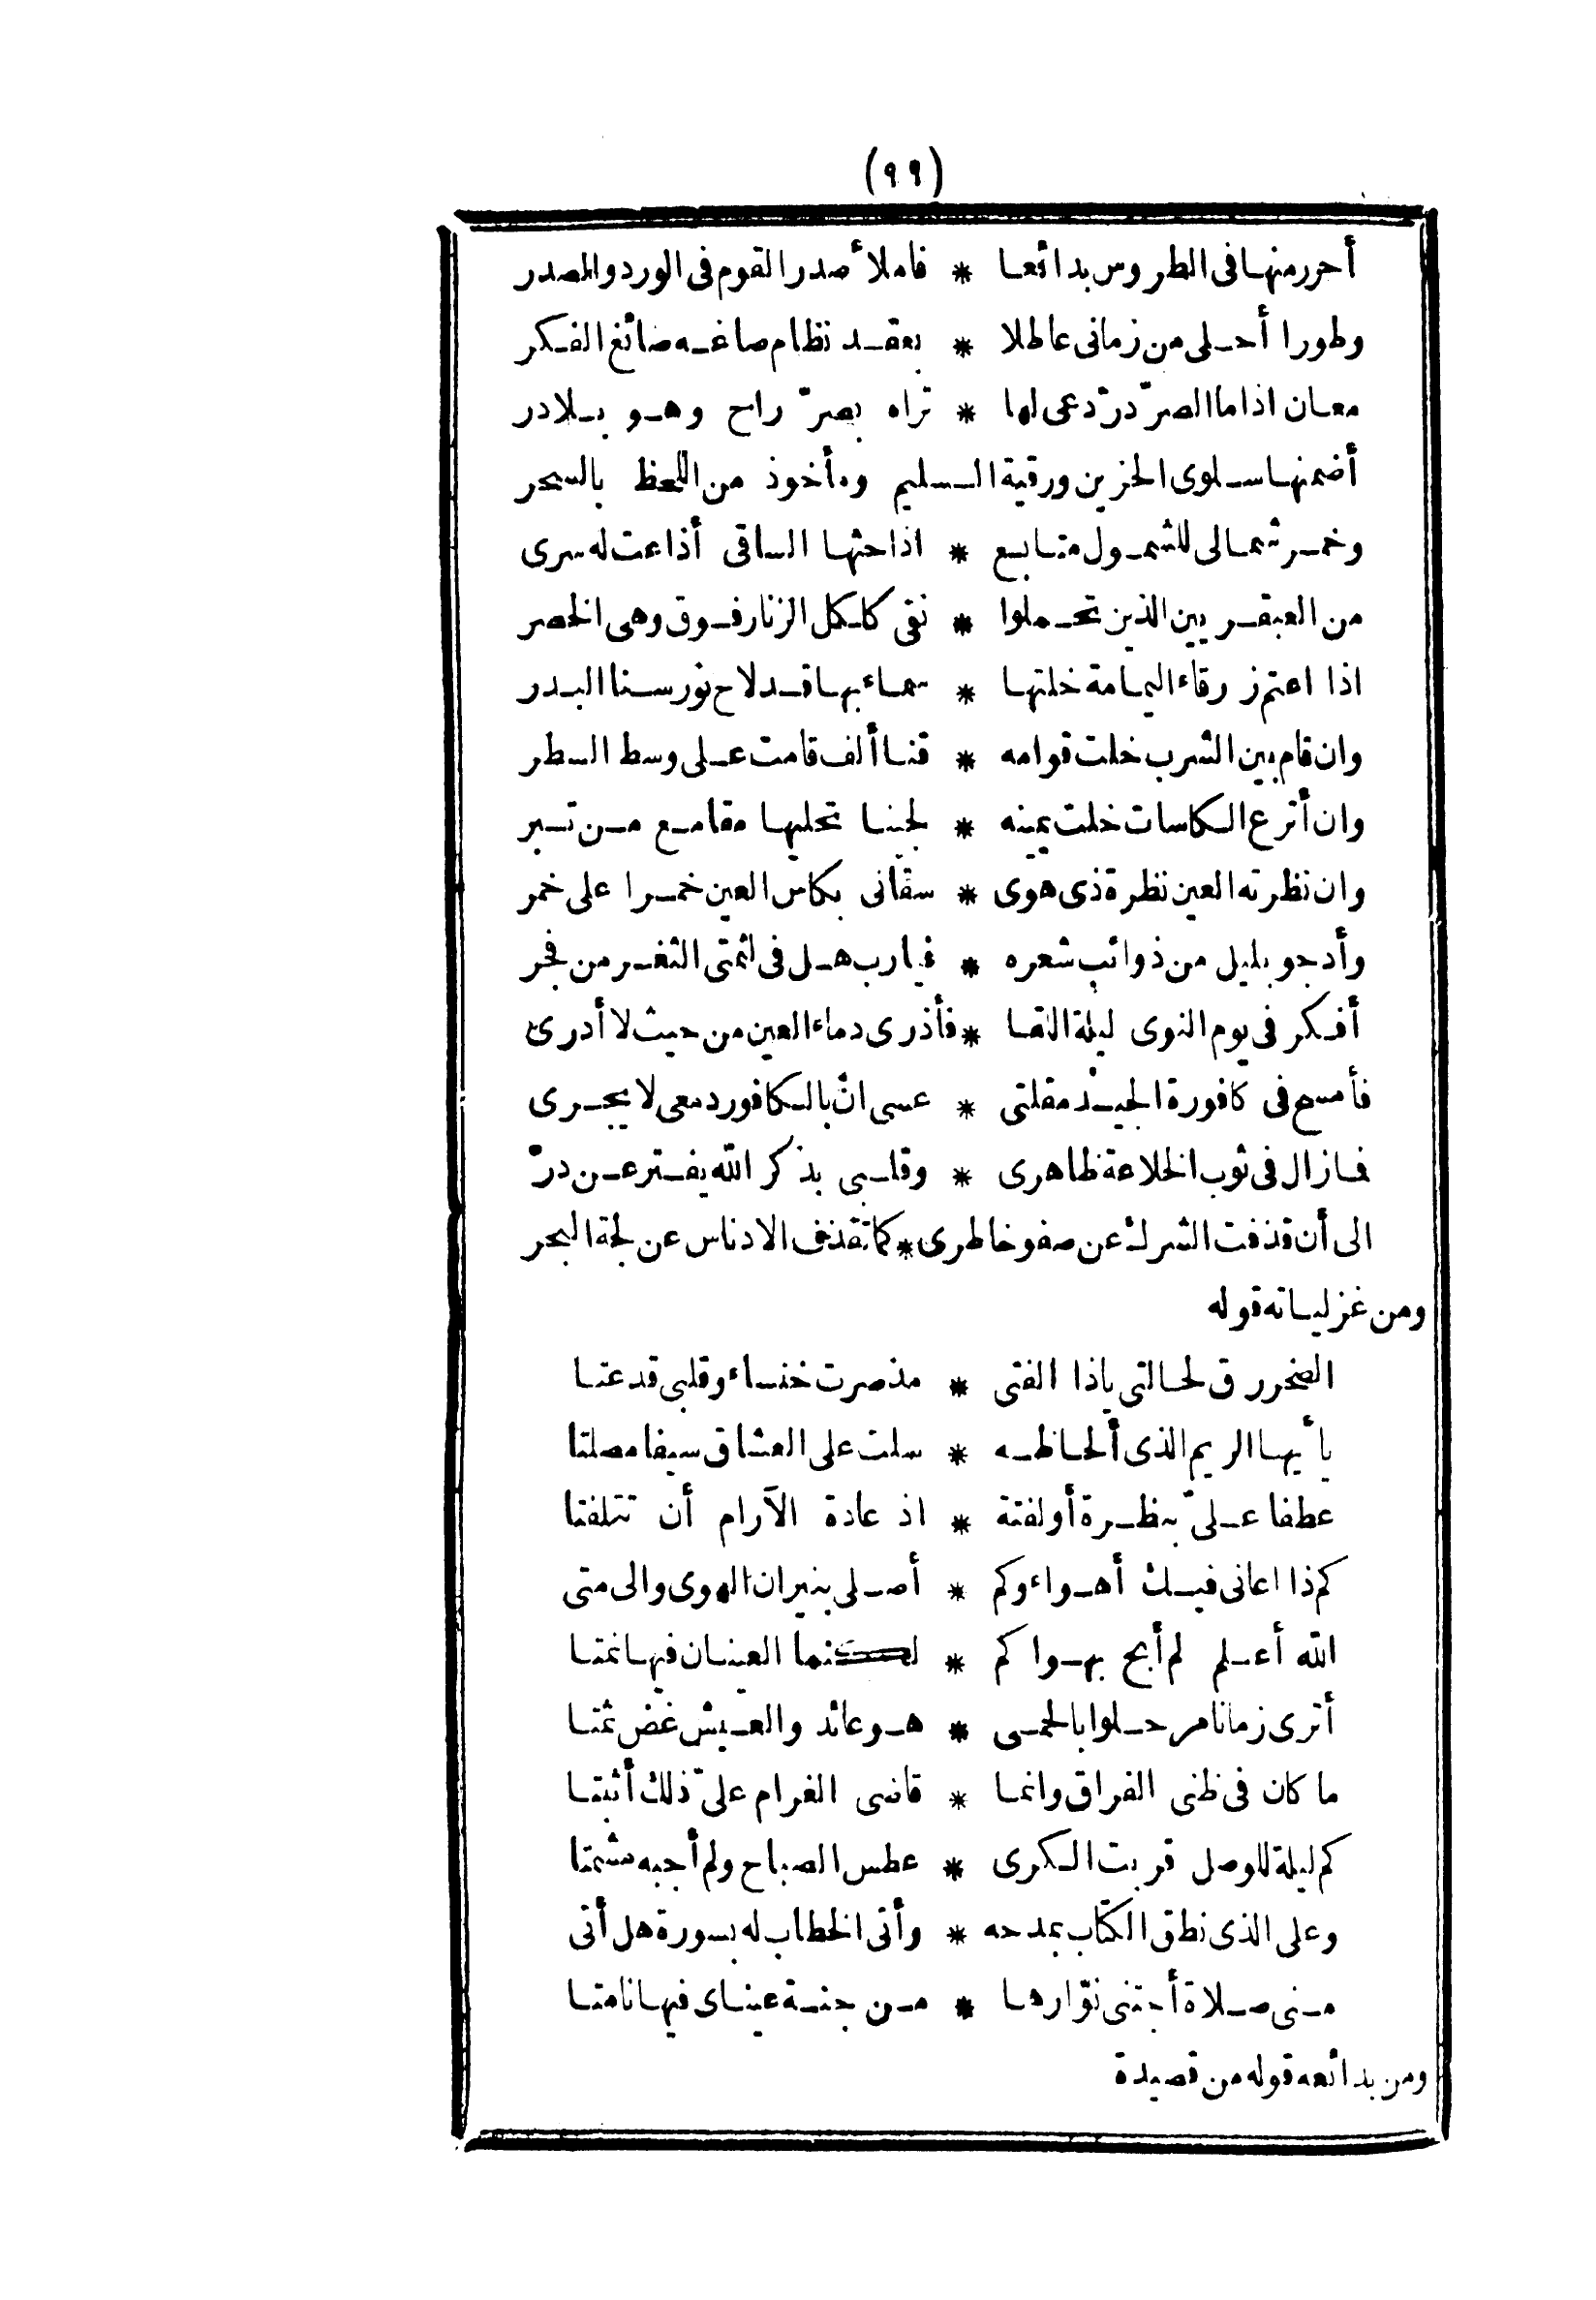 (٩٩)
أحرر منها فى الطروس بدائعا * فاملأ صدر القوم فى الورد والمصدر
وطورا أحلى من زمانى عاطلا * بعقد نظام صاغه صائغ الفكر
معان اذا ما الصرّ درّ دعى لها * تراه بصرّ راح وهو بلا در
أضمنها سلوى الحزين ورقية السليم ومأخوذ من اللحظ بالسحر
وخمر شمالى للشمول متابع * اذا حثها الساقى أذاعت له سرى
من العبقريين الذين تحملوا * نقى ككل الزنار فوق وهى الخصر
اذا اعتم زرقاء اليمامة خلتها * سماء بها قد لاح نور سنا البدر
وان قام بين الشرب خلت قوامه * قنا ألف قامت على وسط السطر
وان أترع الكاسات خلت يمينه * لجينا تحليها مقامع من تبر
وان نظرته العين نظرة ذى هوى * سقانى بكاس العين خمرا على خمر
وأدجو بليل من ذوائب شعره * فيارب هل فى لثمتى الثغر من فجر
أفكر فى يوم النوى ليلة اللقا * فأذرى دماء العين من حيث لا أدرى
فأمسح فى كافورة الجيد مقلتى * عسى انّ بالكافور دمعى لا يجرى
فما زال فى ثوب الخلاعة ظاهرى * وقلبى بذكر الله يفتر عن درّ
الى أن قذفت الشرك عن صفو خاطرى * كما تقذف الادناس عن لجة البحر
ومن غزلياته قوله
الصخر رق لحالتى ياذا الفتى * مذ صرت خنساء وقلبى قد عتا
يا أيها الريم الذى ألحاظه * سلت على العشاق سيفا مصلتا
عطفا علىّ بنظرة أو لفتة * اذ عادة الآرام أن تتلفتا
كم ذا اعانى فيك أهواء وكم * أصلى بنيران الهوى والى متى
الله أعلم لم أبح بهواكم * لكنما العينان فيها نمتا
أترى زمانا مر حلوا بالحمى * هو عائد والعيش غض ثمتا
ما كان فى ظنى الفراق وانما * قاضى الغرام علىّ ذلك أثبتا
كم ليلة للوصل قربت الكرى * عطس الصباح ولم أجبه مشمتا
وعلى الذى نطق الكتاب بمدحه * وأتى الخطاب له بسورة هل أتى
منى صلاة أجتنى نوّارها * من جنة عيناى فيها نامتا
ومن بدائعه قوله من قصيدة